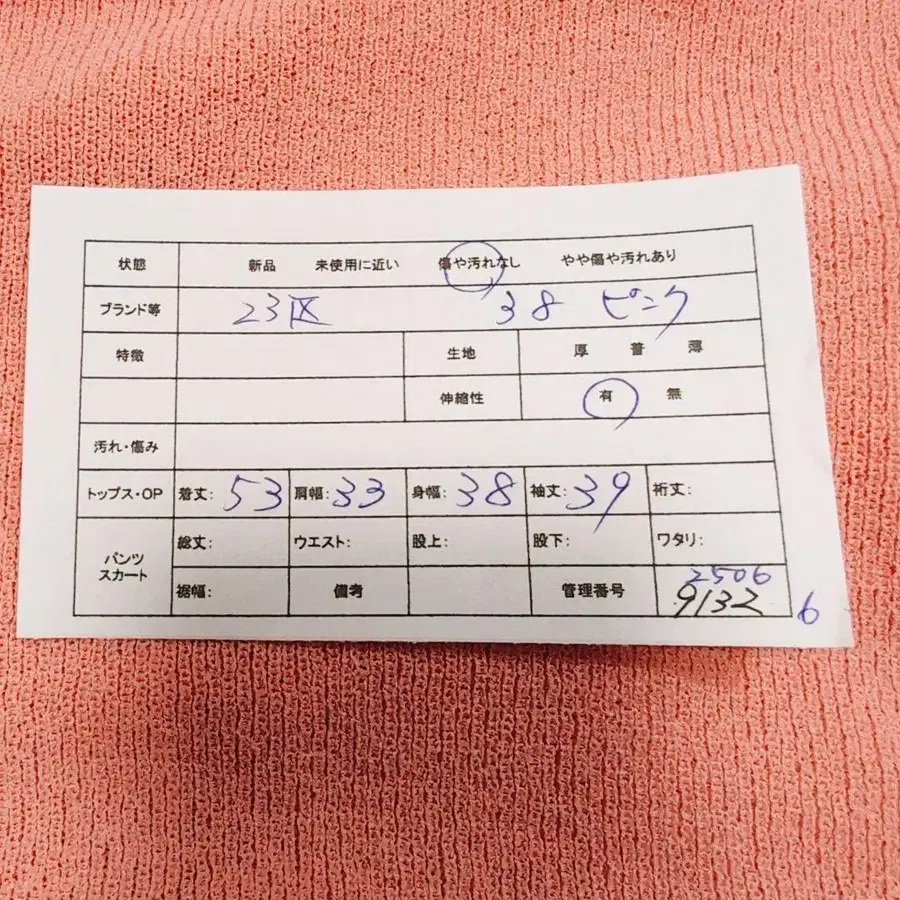 状態 新品 未使用に近い 傷や汚れなし やや傷や汚れあり
ブランド等 23区 38 ピンク
特徴 生地 厚 普 薄
伸縮性 有 無
汚れ・傷み
トップス・OP 着丈: 53 肩幅: 33 身幅: 38 袖丈: 39 裄丈:
パンツ スカート 総丈: ウエスト: 股上: 股下: ワタリ:
裾幅: 備考 管理番号 2506
9132 6